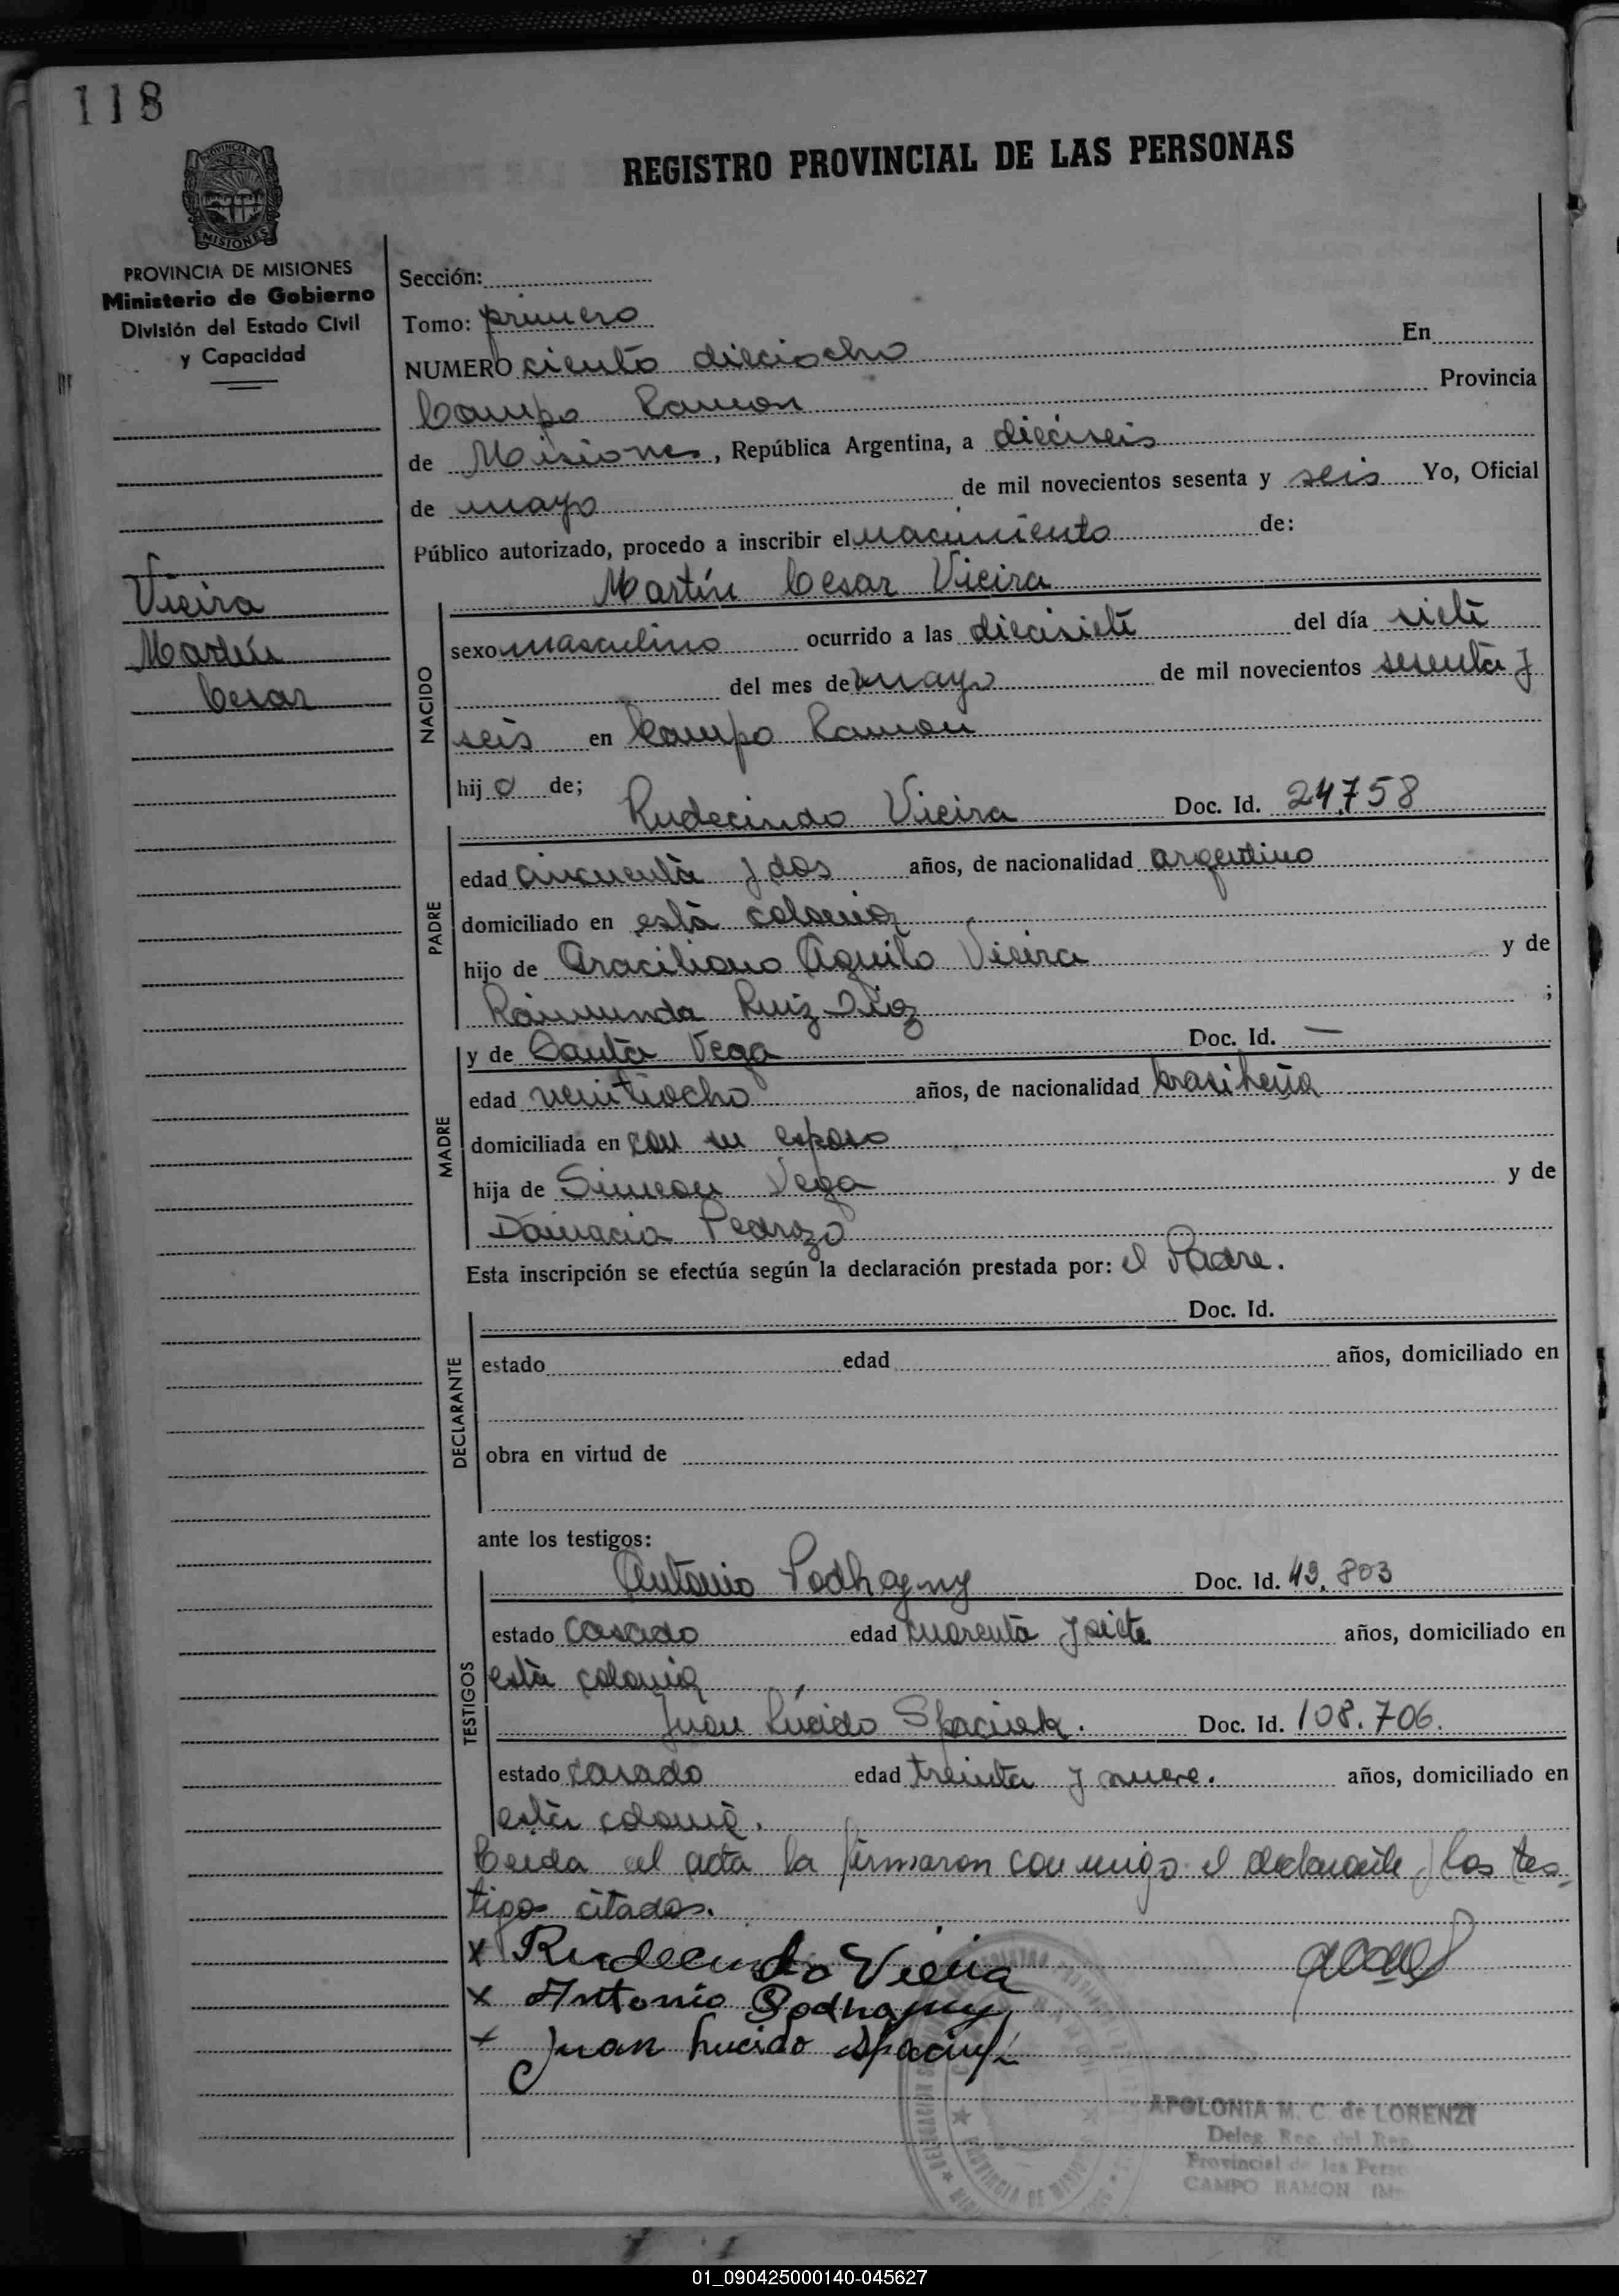 118
REGISTRO PROVINCIAL DE LAS PERSONAS
MISIONES
PROVINCIA DE MISIONES
Ministerio de Gobierno
División del Estado Civil
y Capacidad
Vieira
Martín
Cesar
Sección:
Tomo: primero
NUMERO ciento dieciocho En
Campo Ramon Provincia
de Misiones, República Argentina, a dieciseis
de mayo de mil novecientos sesenta y seis Yo, Oficial
Público autorizado, procedo a inscribir el nacimiento de:
NACIDO
Martín Cesar Vieira
sexo masculino ocurrido a las diecisiete del día siete
del mes de mayo de mil novecientos sesenta y
seis en Campo Ramon
hijo de;
PADRE
Rudecindo Vieira Doc. Id. 24.758
edad cincuenta y dos años, de nacionalidad argentino
domiciliado en esta colonia
hijo de Graciliano Aguilo Vieira y de
Raimunda Ruiz Diaz ;
MADRE
y de Santa Vega Doc. Id. —
edad veintiocho años, de nacionalidad brasileña
domiciliada en con su esposo
hija de Simeon Vega y de
Damacia Pedrozo
Esta inscripción se efectúa según la declaración prestada por: el Padre.
DECLARANTE
Doc. Id.
estado edad años, domiciliado en
obra en virtud de
ante los testigos:
TESTIGOS
Antonio Podhajny Doc. Id. 49.803
estado casado edad cuarenta y siete años, domiciliado en
esta colonia
Juan Lucido Doc. Id. 108.706.
estado casado edad treinta y nueve. años, domiciliado en
esta colonia.
Leida el acta la firmaron conmigo el declarante y los tes-
tigos citados.
x Rudecindo Vieira
x Antonio Podhajny
x Juan Lucido
APOLONIA M. C. de LORENZI
Deleg. Reg. del Reg.
Provincial de las Perso
CAMPO RAMON
01_090425000140-045627